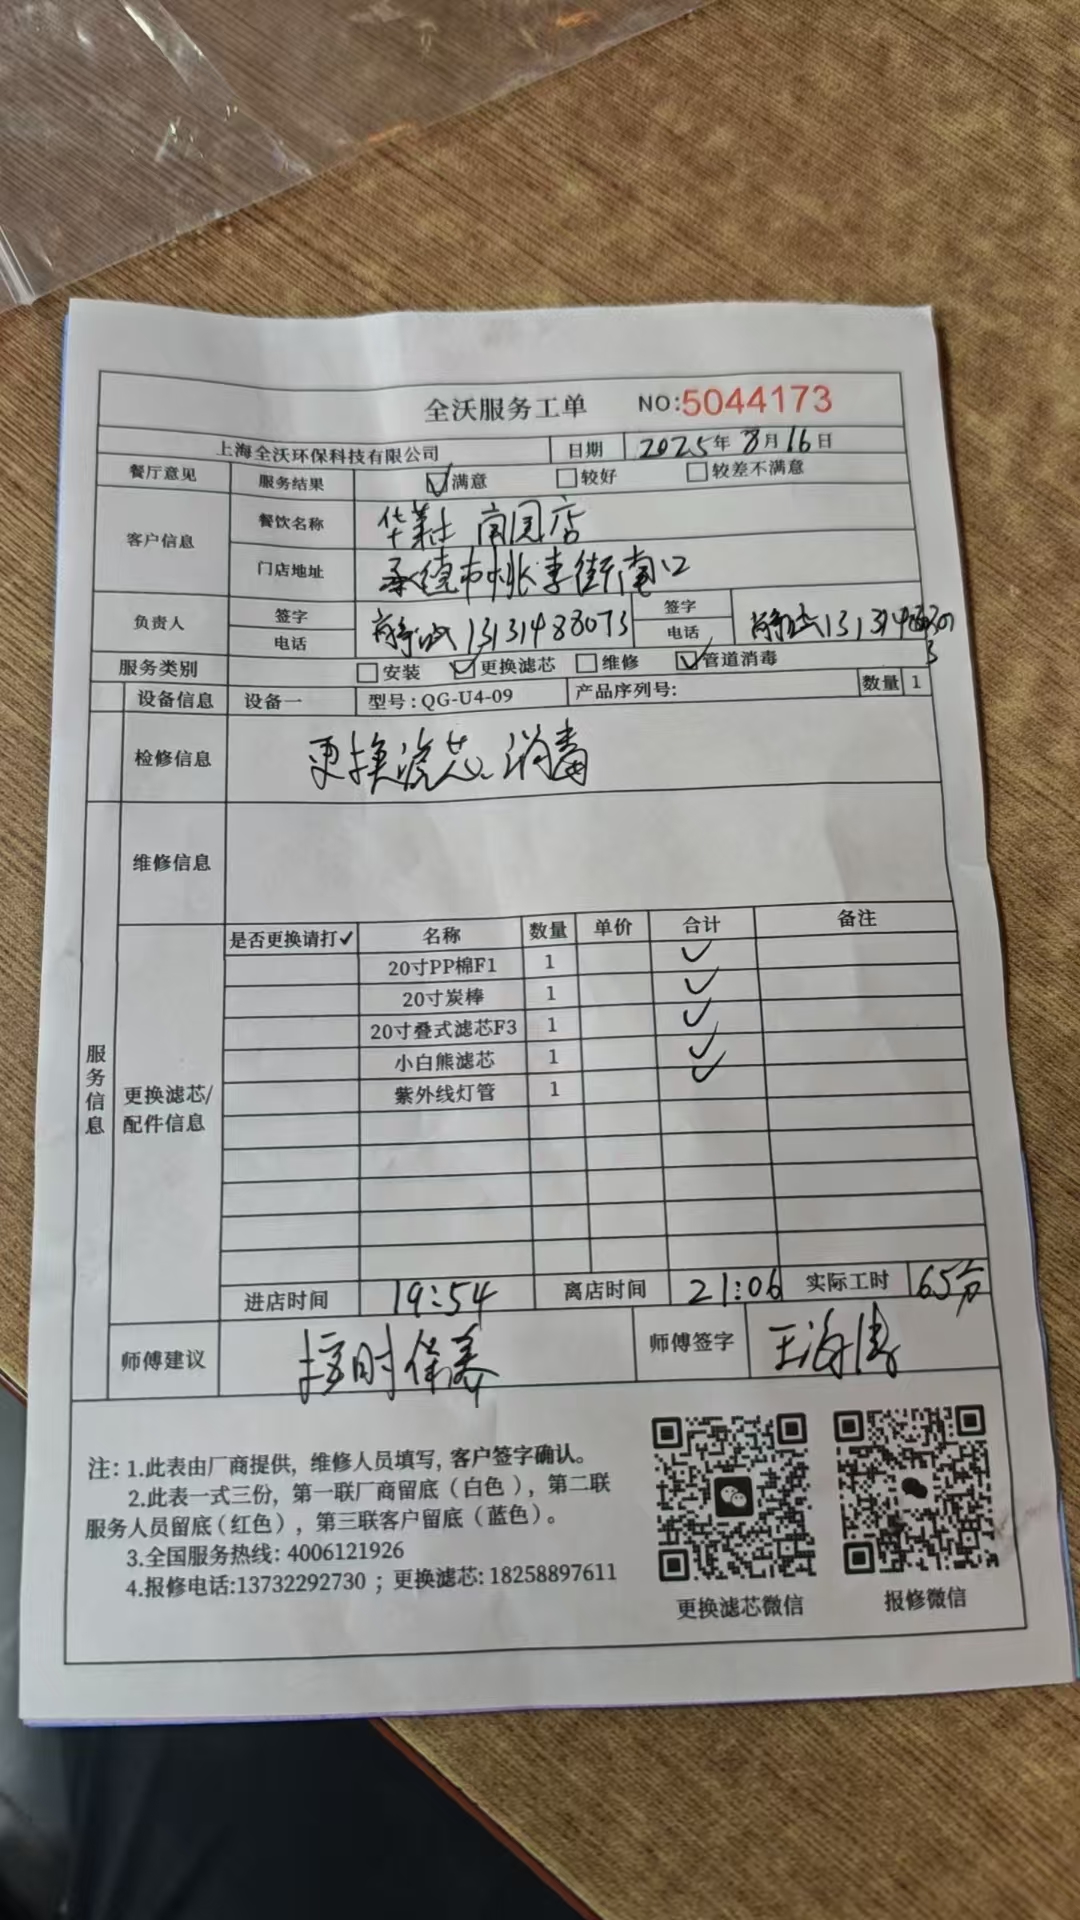 全沃服务工单 NO:5044173
上海全沃环保科技有限公司 日期 2025年8月16日
餐厅意见 服务结果 满意 较好 较差不满意
客户信息 餐饮名称 华莱士 南园店
门店地址 承德市桃李街南口
负责人 签字 电话 13131488073 签字 电话
服务类别 安装 更换滤芯 维修 管道消毒
设备信息 设备一 型号:QG-U4-09 产品序列号: 数量 1
检修信息 更换滤芯、消毒
维修信息
服务信息
更换滤芯/配件信息
是否更换请打✓ 名称 数量 单价 合计 备注
20寸PP棉F1 1 ✓
20寸炭棒 1 ✓
20寸叠式滤芯F3 1 ✓
小白熊滤芯 1 ✓
紫外线灯管 1 ✓
进店时间 19:54 离店时间 21:06 实际工时 65分
师傅建议 按时保养 师傅签字 王海涛
注: 1.此表由厂商提供, 维修人员填写, 客户签字确认。
2.此表一式三份, 第一联厂商留底(白色), 第二联
服务人员留底(红色), 第三联客户留底(蓝色)。
3.全国服务热线: 4006121926
4.报修电话:13732292730 ; 更换滤芯: 18258897611
更换滤芯微信 报修微信